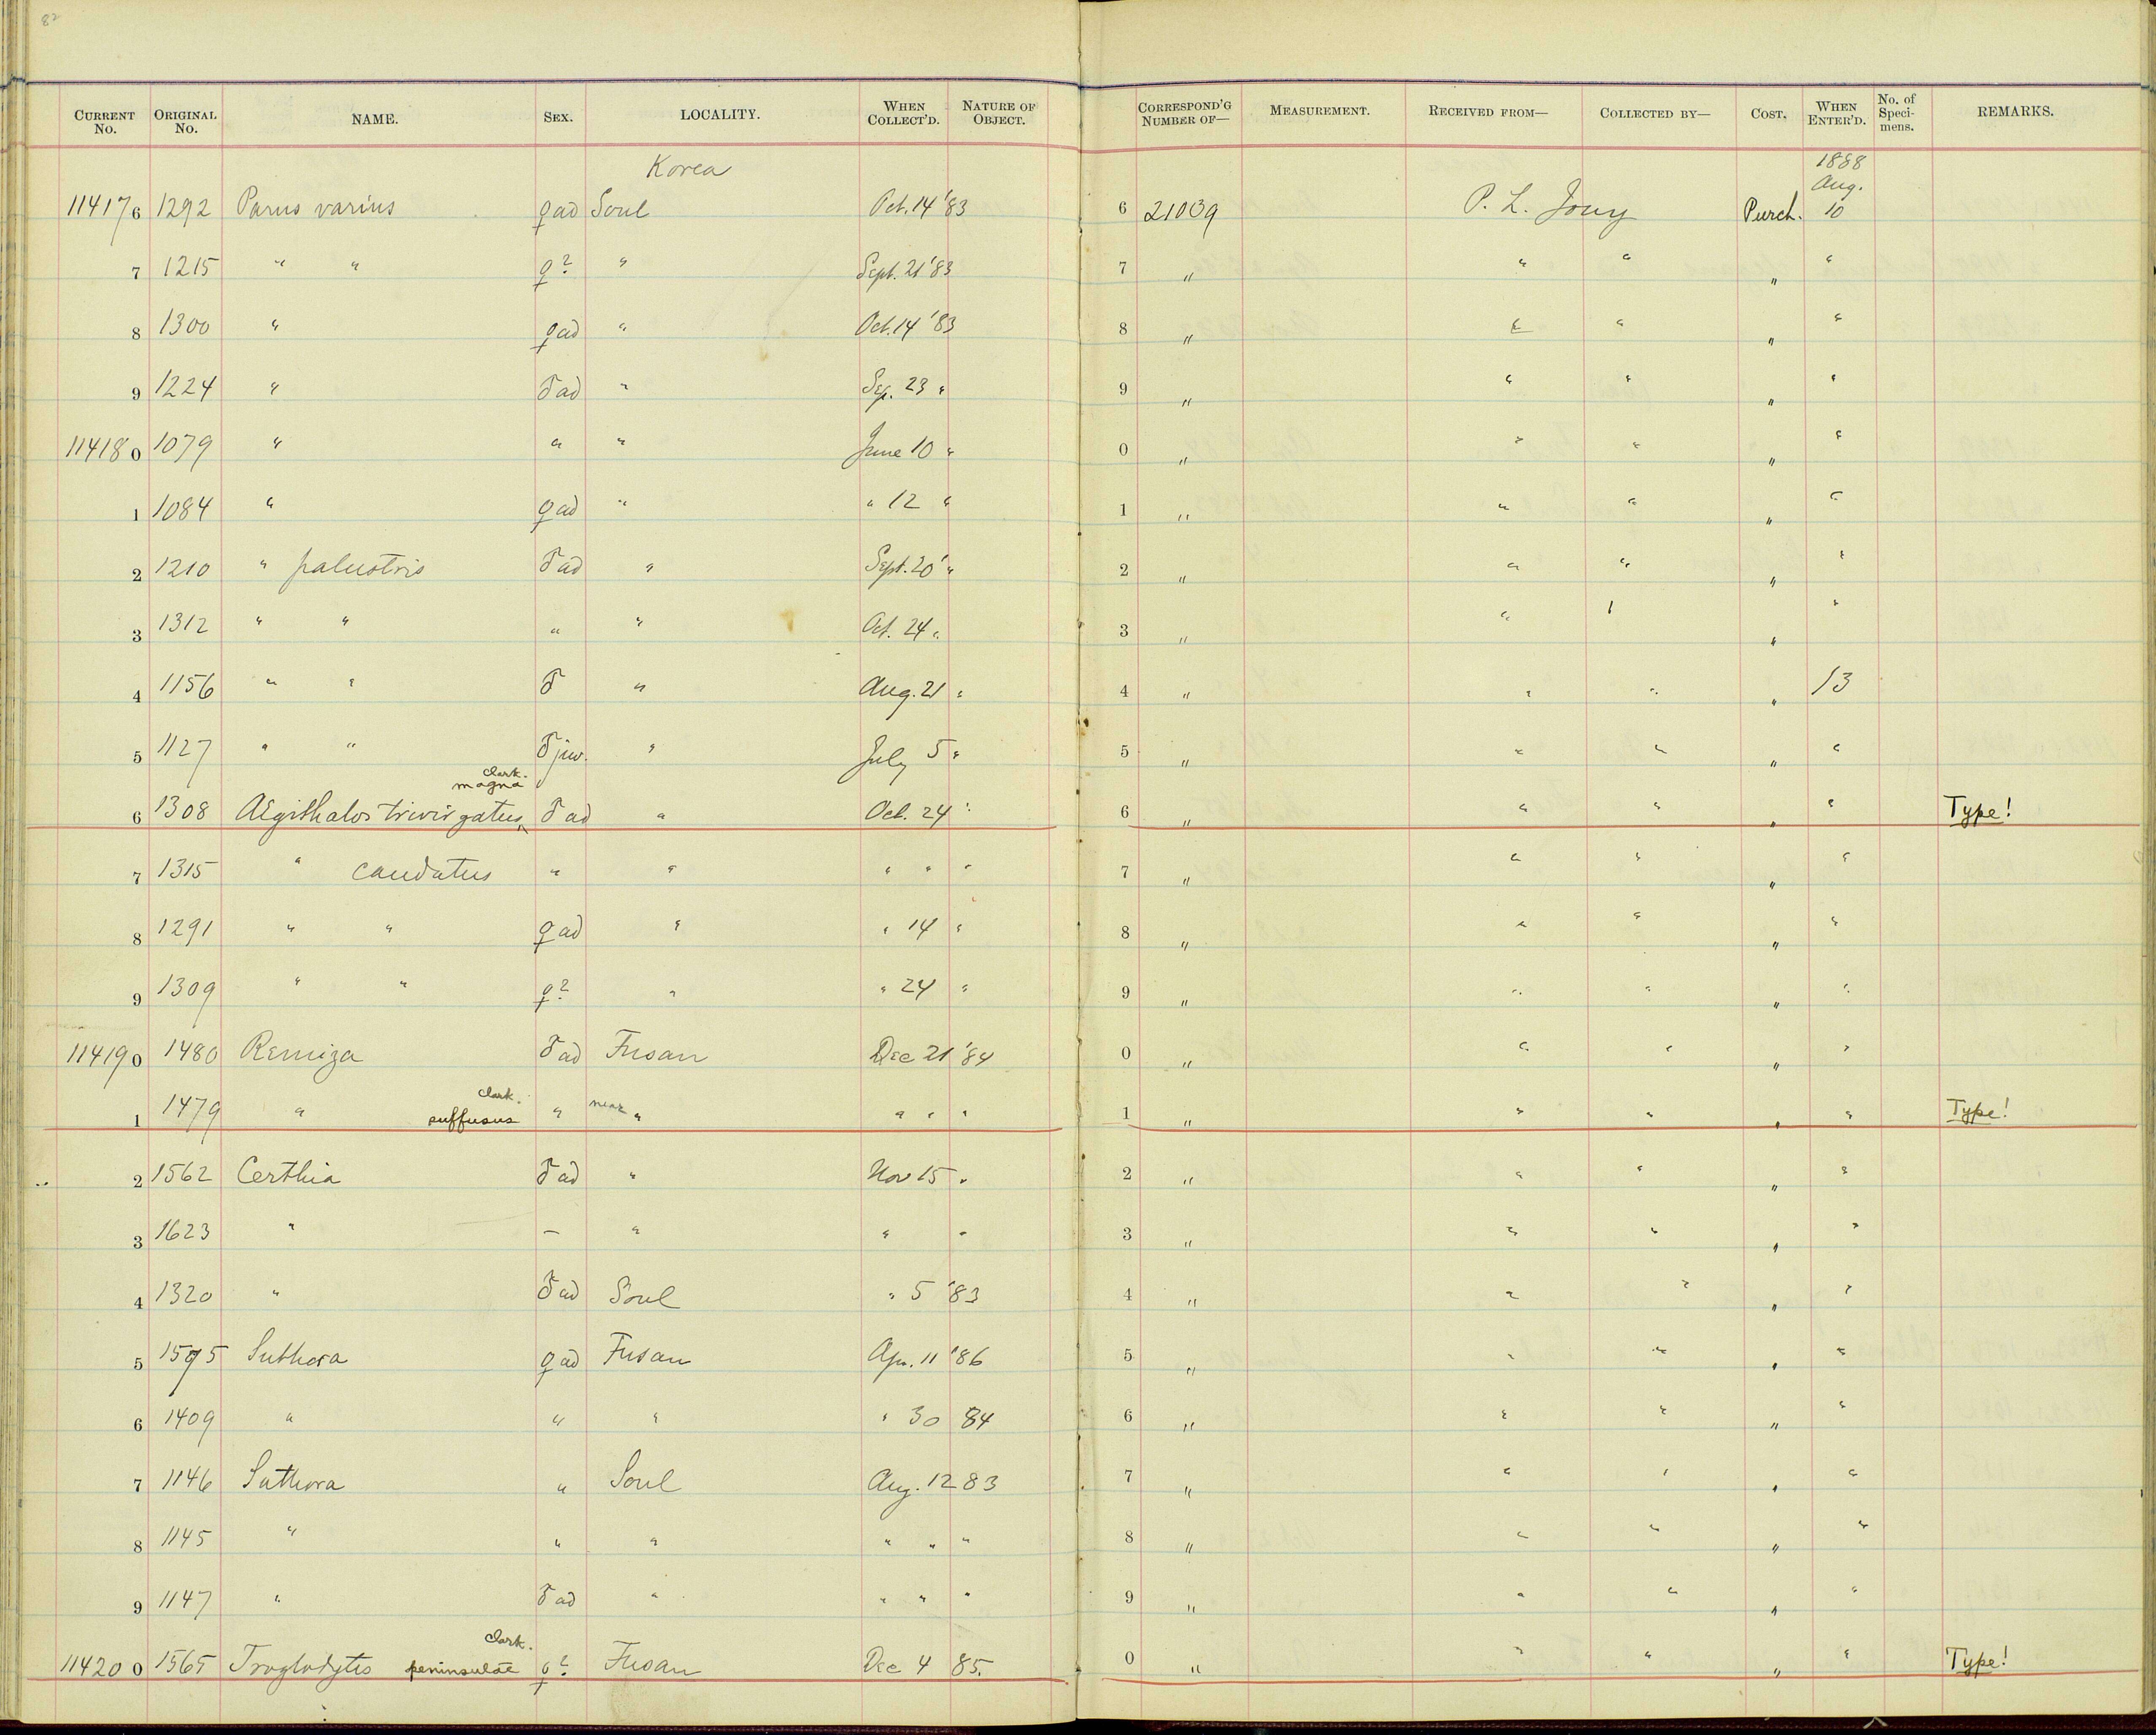 82
CURRENT No. ORIGINAL No. NAME. SEX. LOCALITY. WHEN COLLECT'D. NATURE OF OBJECT. CORRESPOND'G NUMBER OF— MEASUREMENT. RECEIVED FROM— COLLECTED BY— COST. WHEN ENTER'D. No. of Specimens. REMARKS.
Korea 1888
Aug.
114176 1292 Parus varius ♀ ad Soul Oct. 14 '83 6 21039 P. L. Jouy Purch. 10
7 1215 " " ♀? " Sept. 21 '83 7 " " " " "
8 1300 " ♀ ad " Oct. 14 '83 8 " " " " "
9 1224 " ♂ ad " Sep. 23 " 9 " " " " "
114180 1079 " " " June 10 " 0 " " " " "
1 1084 " ♀ ad " " 12 " 1 " " " " "
2 1210 " palustris ♂ ad " Sept. 20 " 2 " " " " "
3 1312 " " " " Oct. 24 " 3 " " " " "
4 1156 " " ♂ " Aug. 21 " 4 " " " " 13
5 1127 " " ♂ juv. " July 5 " 5 " " " " "
Clark.
magna
6 1308 Ægithalos trivirgatus ♂ ad " Oct. 24 " 6 " " " " " Type!
7 1315 " caudatus " " " " " 7 " " " " "
8 1291 " " ♀ ad " " 14 " 8 " " " " "
9 1309 " " ♀? " " 24 " 9 " " " " "
114190 1480 Remiza ♂ ad Fusan Dec 21 '84 0 " " " " "
Clark.
1 1479 " suffusus " near " " " " 1 " " " " " Type!
2 1562 Certhia ♂ ad " Nov 15 " 2 " " " " "
3 1623 " — " " " 3 " " " " "
4 1320 " ♂ ad Soul " 5 '83 4 " " " " "
5 1595 Suthora ♀ ad Fusan Apr. 11 '86 5 " " " " "
6 1409 " " " " 30 84 6 " " " " "
7 1146 Suthora " Soul Aug. 12 83 7 " " " " "
8 1145 " " " " " " 8 " " " " "
9 1147 " ♂ ad " " " " 9 " " " " "
Clark.
114200 1565 Troglodytes peninsulae ♀? Fusan Dec 4 85. 0 " " " " " Type!